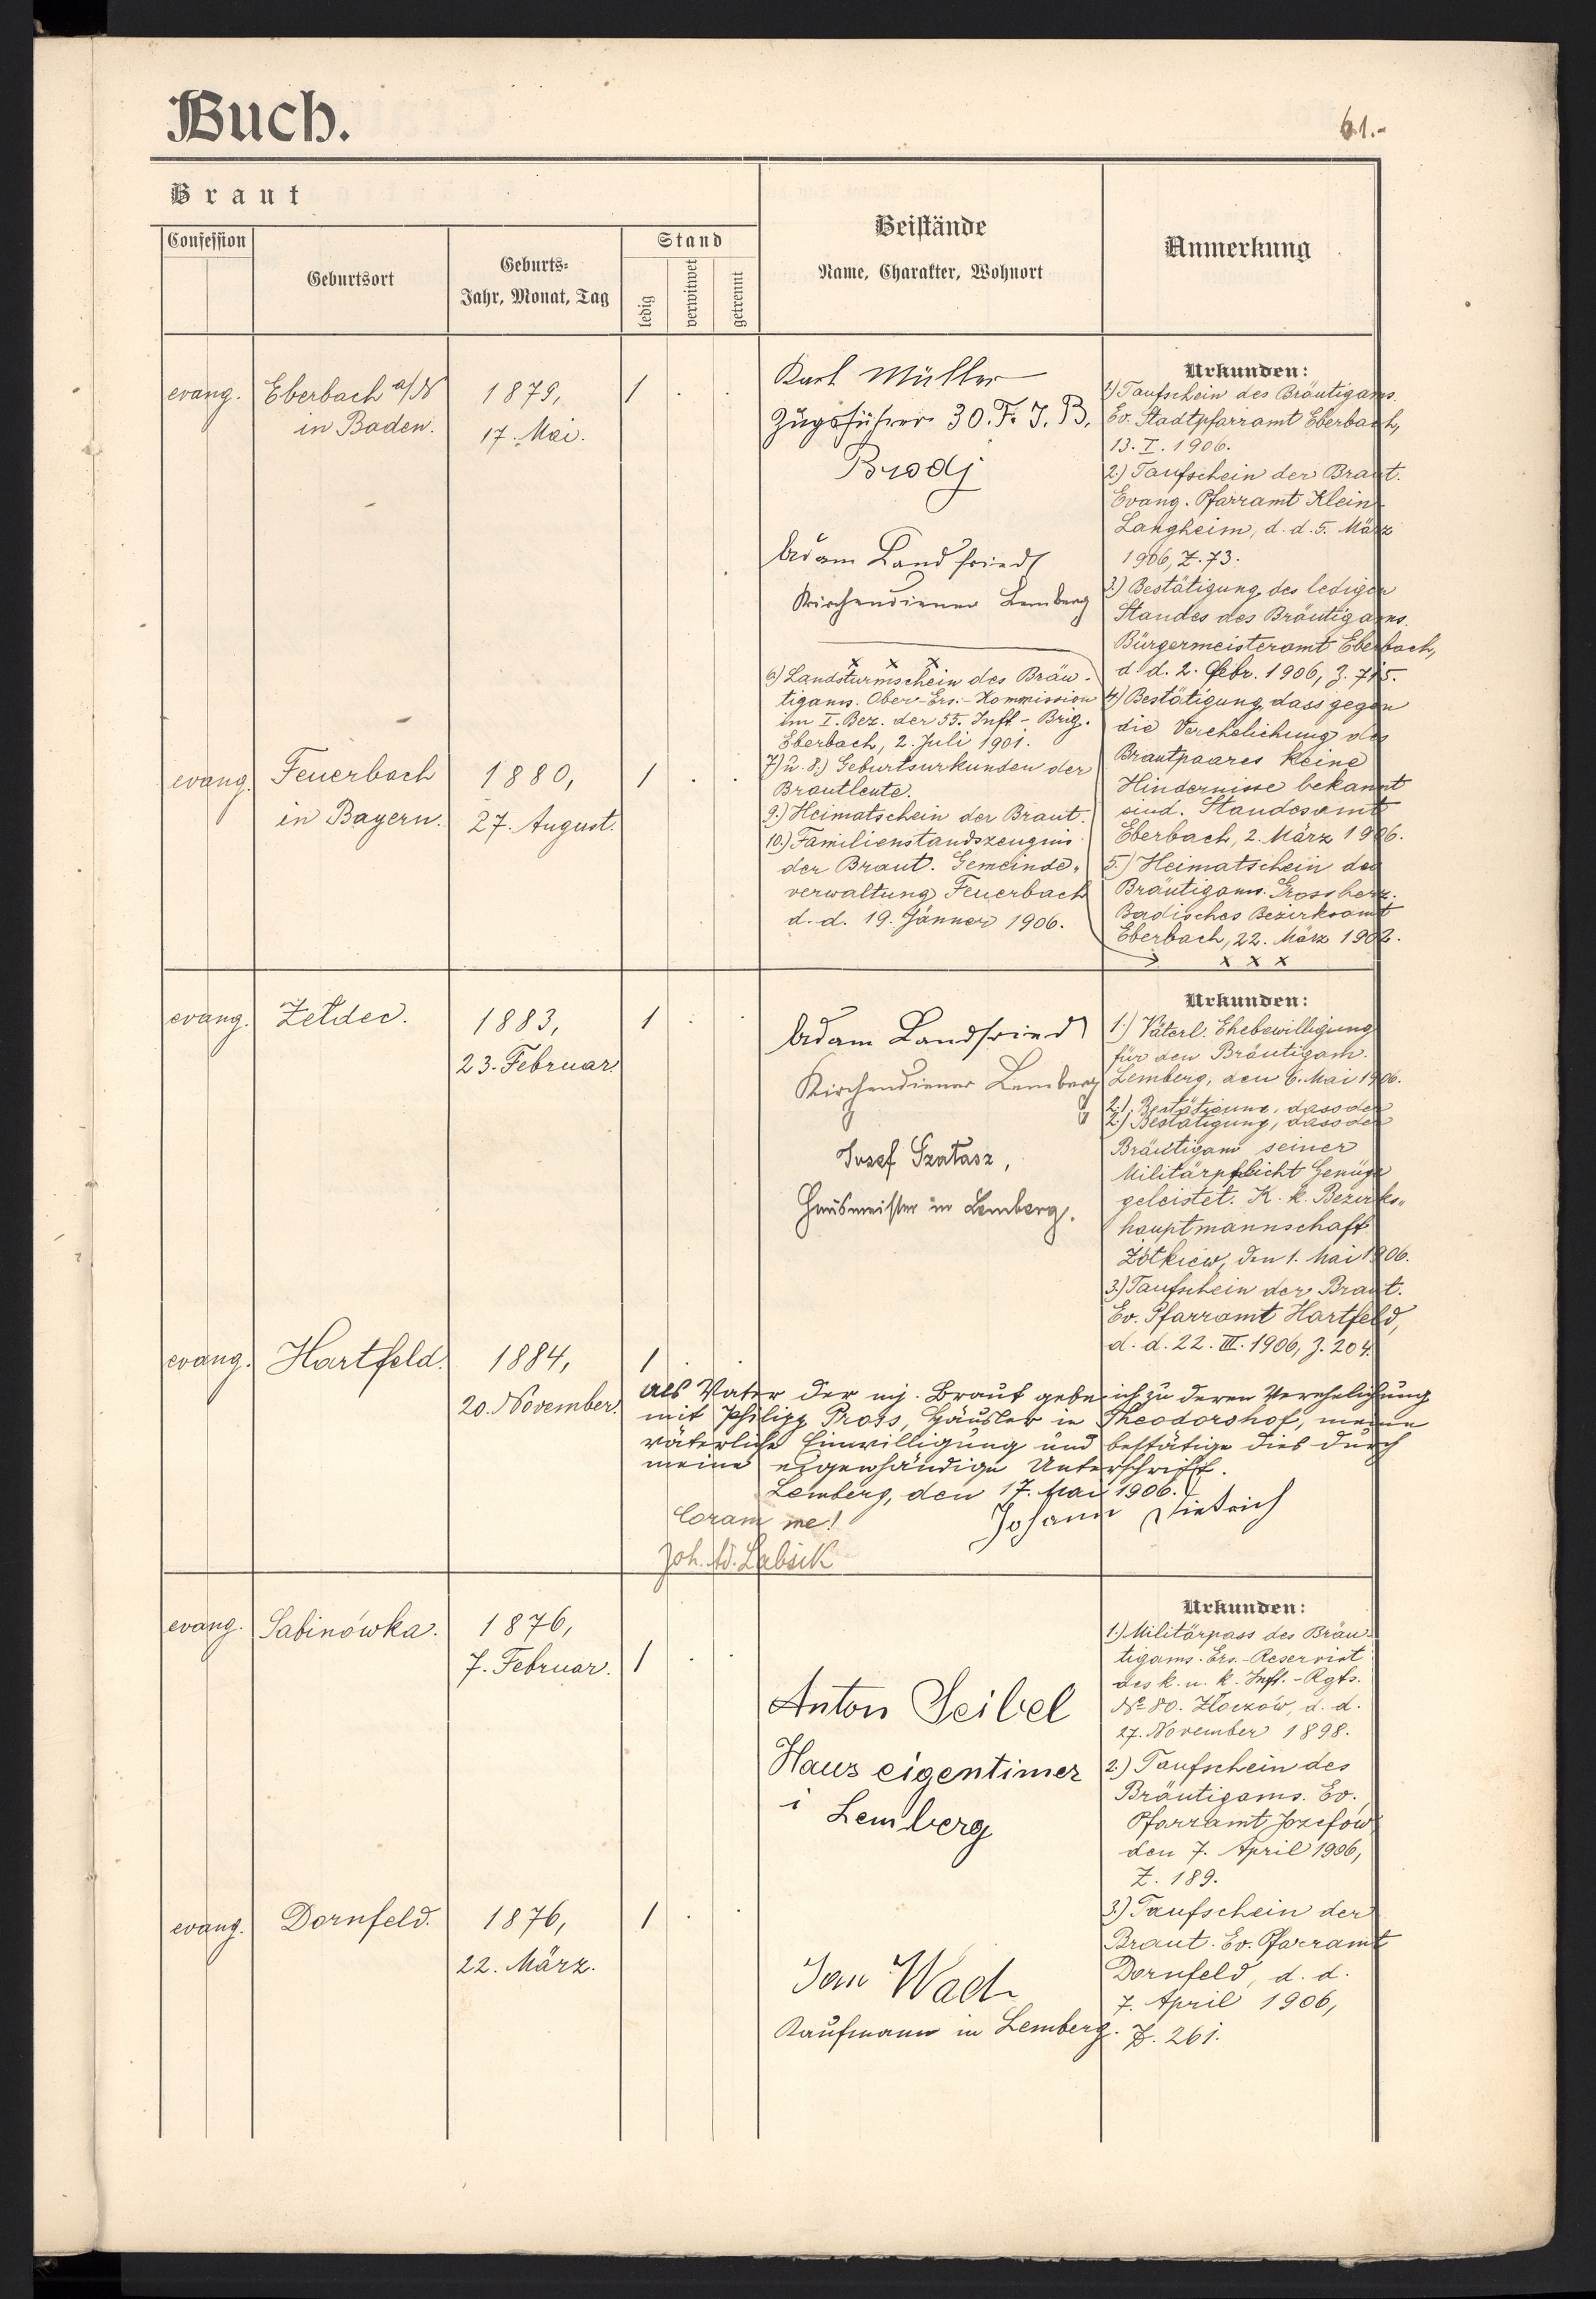 Buch.
61.-
Braut
Confession
Geburtsort
Geburts-
Jahr, Monat, Tag
Stand
ledig
verwitwet
getrennt
Beistände
Name, Charakter, Wohnort
Anmerkung
evang.
Eberbach a/N
in Baden.
1879,
17. Mai.
1
Karl Müller
Zugsführer 30. F. J. B.
Brodj
Adam Landfried
Kirchendiener Lemberg
Urkunden:
1.) Taufschein des Bräutigams.
Ev. Stadtpfarramt Eberbach,
13. I. 1906.
2.) Taufschein der Braut.
Evang. Pfarramt Klein-
Langheim, d. d. 5. März
1906, Z. 73.
3.) Bestätigung des ledigen
Standes des Bräutigams.
Bürgermeisteramt Eberbach,
d. d. 2. Febr. 1906, Z. 715.
4.) Bestätigung dass gegen
die Verehelichung des
Brautpaares keine
Hindernisse bekannt
sind. Standesamt
Eberbach, 2. März 1906.
5.) Heimatschein des
Bräutigams. Grossherz.
Badisches Bezirksamt
Eberbach, 22. März 1902.
x x x
x x x
6.) Landsturmschein des Bräu-
tigams. Ober-Ers.-Kommission
im I. Bez. der 55. Inft.-Brig.
Eberbach, 2. Juli 1901.
7.) u. 8.) Geburtsurkunden der
Brautleute.
9.) Heimatschein der Braut.
10.) Familienstandszeugnis
der Braut. Gemeinde-
verwaltung Feuerbach
d. d. 19. Jänner 1906.
evang.
Feuerbach
in Bayern.
1880,
27. August.
1
evang.
Zeldec.
1883,
23. Februar.
1
Adam Landfried
Kirchendiener Lemberg
Josef Szatasz,
Hausmeister in Lemberg.
Urkunden:
1.) Väterl. Ehebewilligung
für den Bräutigam.
Lemberg, den 6. Mai 1906.
2.) Bestätigung, dass der
2.) Bestätigung, dass der
Bräutigam seiner
Militärpflicht Genüge
geleistet. K. k. Bezirks-
hauptmannschaft
Żółkiew, den 1. Mai 1906.
3.) Taufschein der Braut.
Ev. Pfarramt Hartfeld,
d. d. 22. III. 1906, Z. 204.
evang.
Hartfeld.
1884,
20. November.
1
Als Vater der mj. Braut gebe ich zu deren Verehelichung
mit Philipp Pross, Häusler in Theodorshof, meine
väterliche Einwilligung und bestätige dies durch
meine eigenhändige Unterschrift.
Lemberg, den 17. Mai 1906.
Coram me!
Johann Dietrich
Joh. Ad. Labsik
evang.
Sabinówka.
1876,
7. Februar.
1
Anton Seibel
Haus eigentimer
i Lemberg
Urkunden:
1.) Militärpass des Bräu-
tigams. Ers.-Reservist
des k. u. k. Inft.-Rgts.
No 80. Złoczów, d. d.
27. November 1898.
2.) Taufschein des
Bräutigams. Ev.
Pfarramt Józefów,
den 7. April 1906,
Z. 189.
3.) Taufschein der
Braut. Ev. Pfarramt
Dornfeld, d. d.
7. April 1906,
Z. 261.
evang.
Dornfeld.
1876,
22. März.
1
Jan Wach
Kaufmann in Lemberg.